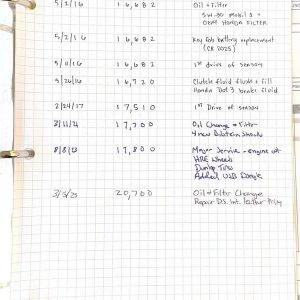 5/2/16 16,682 Oil + Filter
5W-30 Mobil 1
OEM HONDA FILTER
5/2/16 16,682 Key fob battery replacement
(CR 2025)
5/11/16 16,682 1st drive of season
5/20/16 16,720 Clutch fluid flush + fill
Honda Dot 3 brake fluid
2/24/17 17,510 1st Drive of season
17,700 Oil Change + Filter
4 new Bilstein Shocks
17,800 Major Service - engine out
HRE Wheels
Dunlop Tires
Added USB Dongle
20,700 Oil + Filter Change
Repair D.S. Int. leather